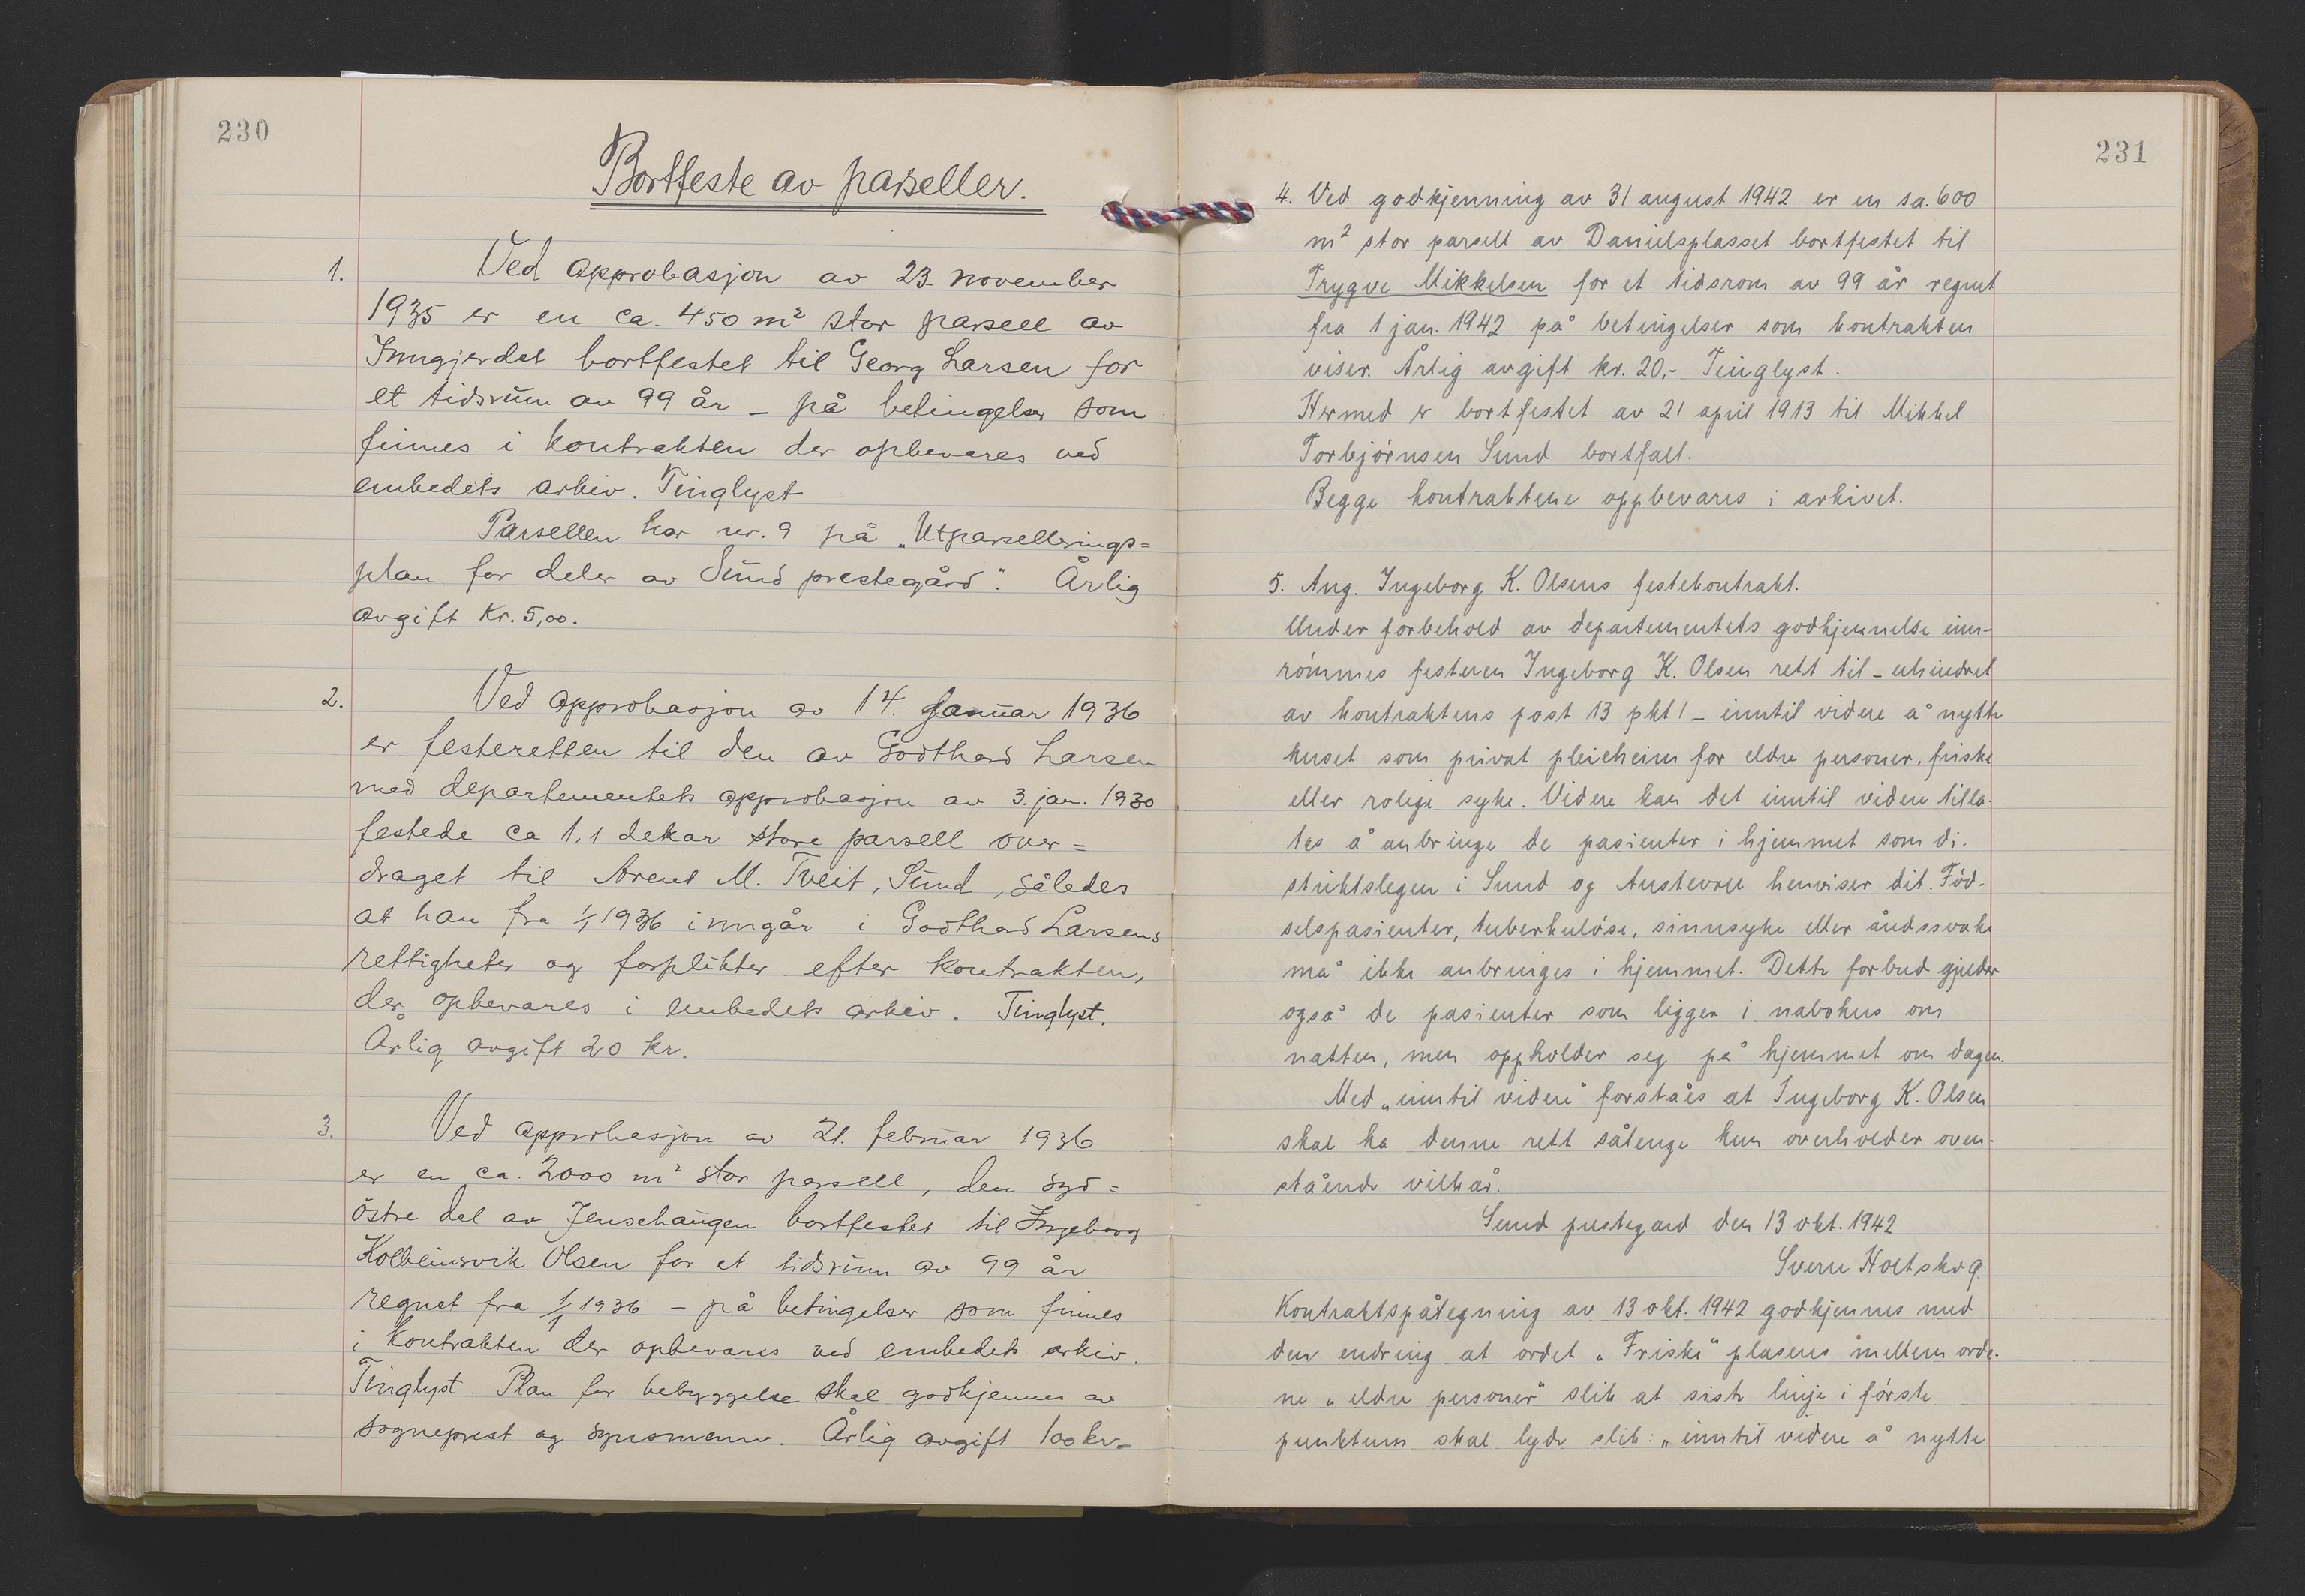 230
Bortfeste av parseller.
1. Ved approbasjon av 23. november
1935 er en ca. 450 m² stor parsell av
Inngjerdet bortfestet til Georg Larsen for
et tidsrum av 99 år – på betingelser som
finnes i kontrakten der opbevares ved
embedets arkiv. Tinglyst
Parsellen har nr. 9 på „Utparsellerings=
plan for deler av Sund prestegård". Årlig
avgift Kr. 5,00.
2. Ved approbasjon av 14. januar 1936
er festeretten til den av Godthard Larsen
med departementets approbasjon av 3. jan. 1930
festede ca 1,1 dekar store parsell over=
draget til Arent M. Tveit, Sund, således
at han fra 1/1 1936 inngår i Godthard Larsens
rettigheter og forplikter efter kontrakten,
der opbevares i embedets arkiv. Tinglyst.
Årlig avgift 20 kr.
3. Ved approbasjon av 21. februar 1936
er en ca. 2000 m² stor parsell, den syd=
østre del av Jensehaugen bortfestet til Ingeborg
Kolbeinsvik Olsen for et tidsrum av 99 år
regnet fra 1/1 1936 – på betingelser som finnes
i kontrakten der opbevares ved embedets arkiv.
Tinglyst. Plan for bebyggelse skal godkjennes av
sogneprest og synsmenn. Årlig avgift 100 kr–
231
4. Ved godkjenning av 31 august 1942 er en sa. 600
m² stor parsell av Danielsplasset bortfestet til
Trygve Mikkelsen for et tidsrom av 99 år regnet
fra 1 jan. 1942 på betingelser som kontrakten
viser. Årlig avgift kr. 20,- Tinglyst.
Hermed er bortfestet av 21 april 1913 til Mikkel
Torbjørnsen Sund bortfalt.
Begge kontraktene oppbevares i arkivet.
5. Ang. Ingeborg K. Olsens festekontrakt.
Under forbehold av departementets godkjennelse inn-
rømmes festeren Ingeborg K. Olsen rett til – uhindret
av kontraktens post 13 pkt 1 – inntil videre å nytte
huset som privat pleieheim for eldre personer, friske
eller rolige syke. Videre kan det inntil videre tilla-
tes å anbringe de pasienter i hjemmet som di-
striktslegen i Sund og Austevoll henviser dit. Fød-
selspasienter, tuberkuløse, sinnsyke eller åndssvake
må ikke anbringes i hjemmet. Dette forbud gjelder
også de pasienter som ligger i nabohus om
natten, men oppholder seg på hjemmet om dagen.
Med „inntil videre" forståes at Ingeborg K. Olsen
skal ha denne rett sålenge hun overholder oven-
stående vilkår.
Sund prestegard den 13 okt. 1942
Sverre Holtskog
Kontraktspåtegning av 13 okt. 1942 godkjennes med
den endring at ordet „Friske" plaseres mellem orde-
ne „eldre personer" slik at siste linje i første
punktum skal lyde slik: „inntil videre å nytte